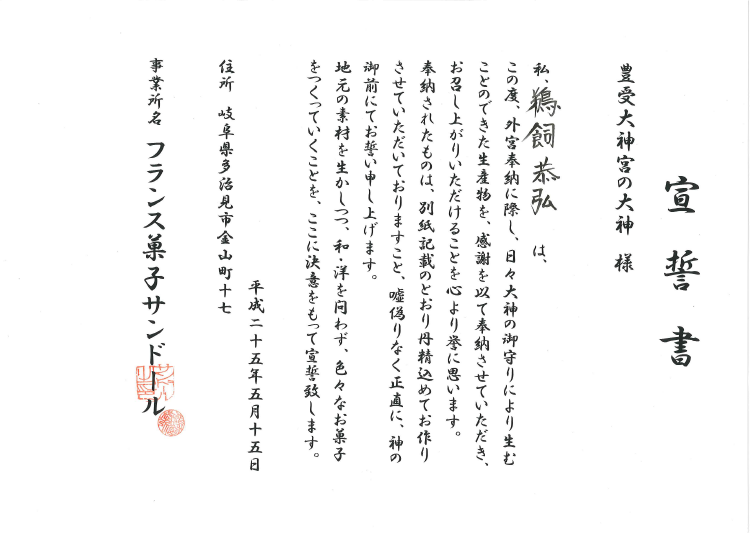 宣誓書
豊受大神宮の大神 様
私、鵜飼恭弘 は、
この度、外宮奉納に際し、日々大神の御守りにより生む
ことのできた生産物を、感謝を以て奉納させていただき、
お召し上がりいただけることを心より誉に思います。
奉納されたものは、別紙記載のとおり丹精込めてお作り
させていただいておりますこと、嘘偽りなく正直に、神の
御前にてお誓い申し上げます。
地元の素材を生かしつつ、和・洋を問わず、色々なお菓子
をつくっていくことを、ここに決意をもって宣誓致します。
平成二十五年五月十五日
住所 岐阜県多治見市金山町十七
事業所名 フランス菓子サンドール